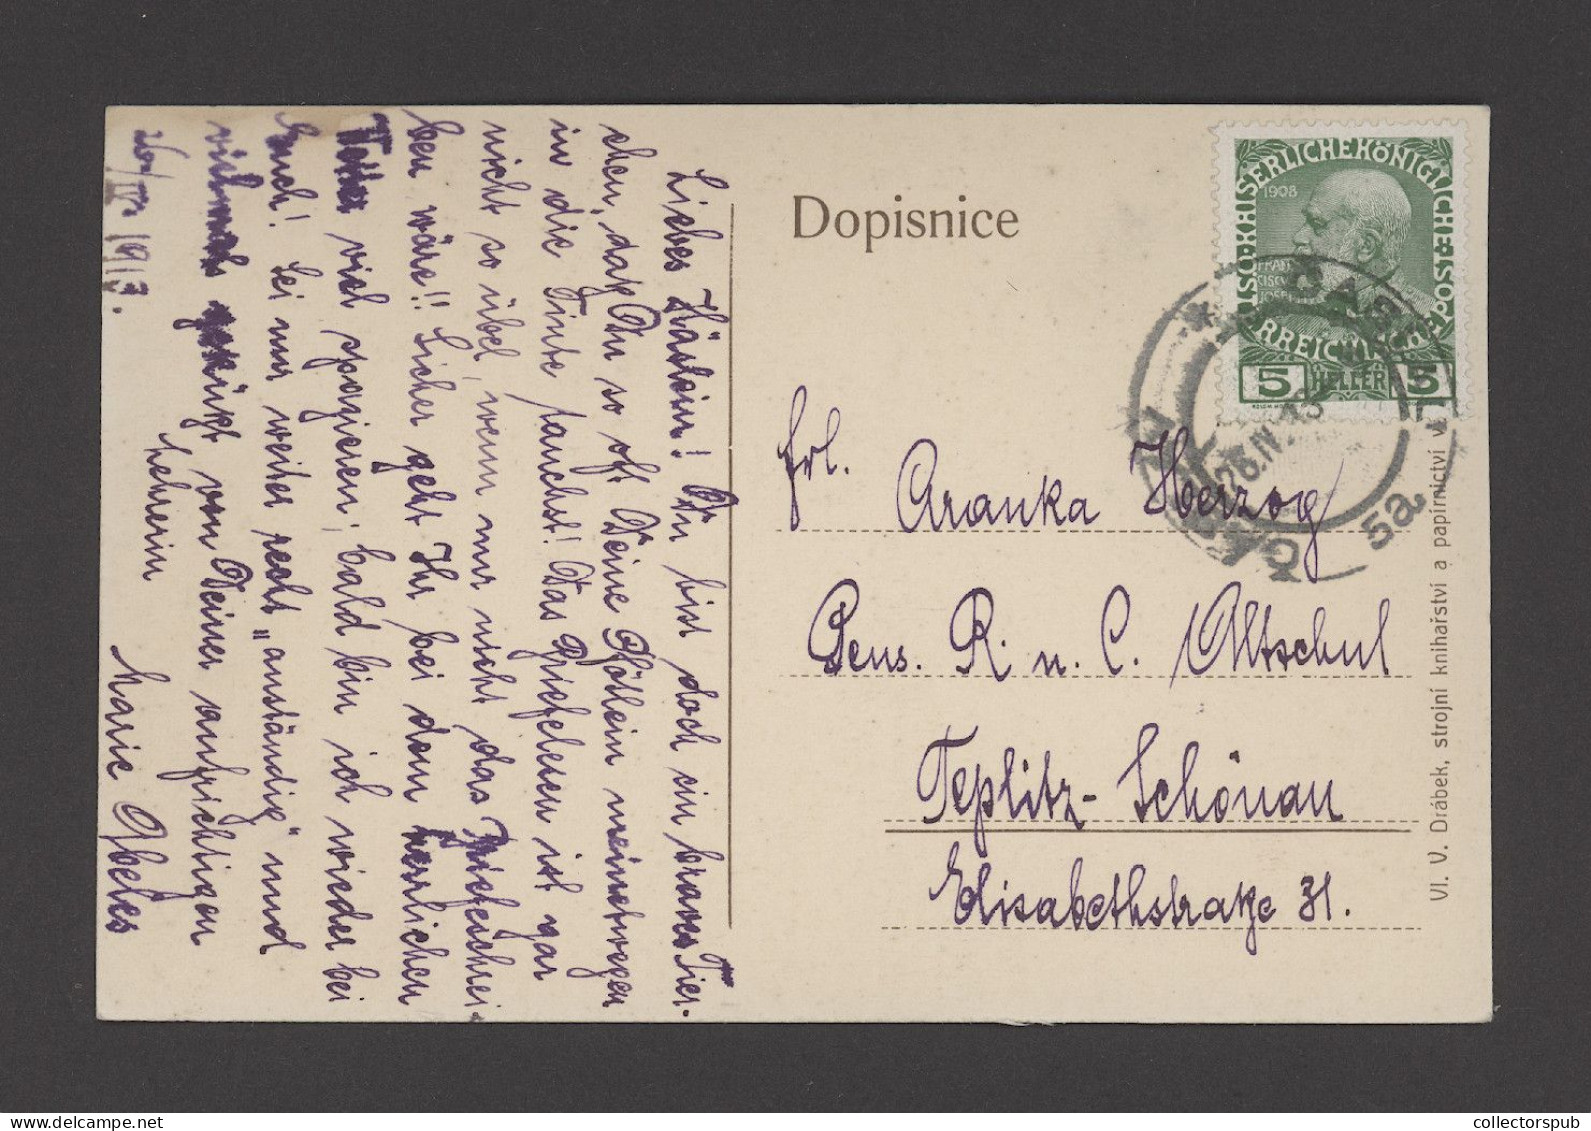 Dopisnice
KAISERLICHE KÖNIGLICHE ÖSTERREICHISCHE POST
1908
FRAN
CISCVS
JOSEPH
5 HELLER 5
ČÁS
26.IV.13
5a
Frl. Aranka Herzog
Pens. R. u. C. Altschul
Teplitz-Schönau
Elisabethstraße 31.
Vl. V. Drábek, strojní knihařství a papírnictví v
Liebes Häslein! Du bist doch ein braves Tier-
chen, daß Du so oft Deine Pfötlein meinetwegen
in die Tinte tauchst! Das Briefelesen ist gar
nicht so übel, wenn nur nicht das Briefeschrei-
ben wäre!! Sicher geht Ihr bei dem herrlichen
viel spazieren; bald bin ich wieder bei
Euch! Sei nur weiter recht „anständig" und
vielmals geküßt von Deiner aufrichtigen
Lehrerin
Marie Abeles
26/IV. 1913.